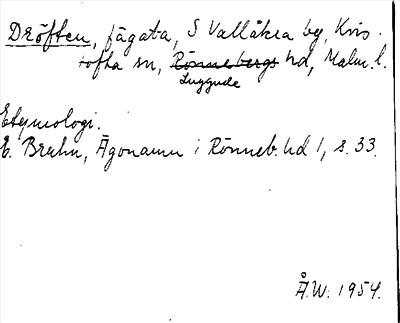 Dröften, fägata, S Vallåkra by, Kvis-
tofta sn, Rönnebergs hd, Malm. l.
Luggude
Etymologi.
E. Bruhn, Ägonamn i Rönneb. hd 1, s. 33.
Å.W. 1954.